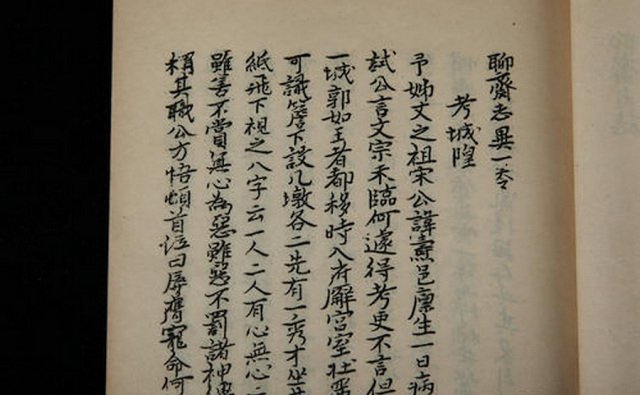 聊齋志異一卷
考城隍
予姊丈之祖宋公諱燾邑廩生一日病
試公言文宗未臨何遽得考吏不言但
一城郭如王者都移時入府廨宮室壯
可識簷下設几墩各二先有一秀才坐其
紙飛下視之八字云一人二人有心無心
雖善不賞無心為惡雖惡不罰諸神
稱其職公方悟頓首泣曰辱膺寵命何